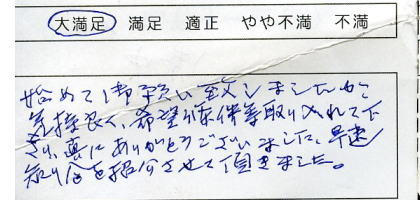 大満足 満足 適正 やや不満 不満
始めて御願い致しましたが
気持良く、希望条件等取り入れて下
さり、真にありがとうございました。早速
知り合を紹介させて頂きました。